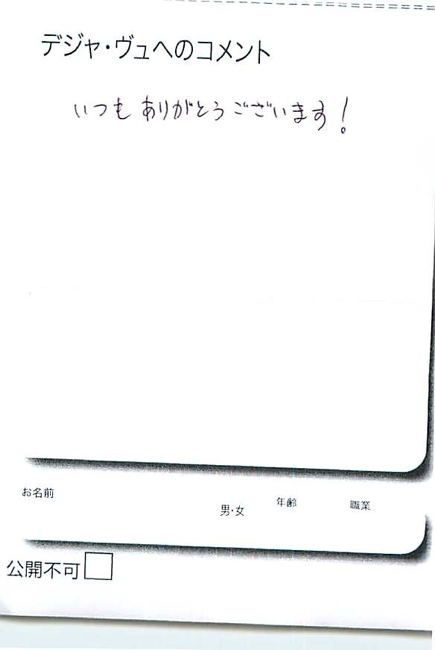 デジャ・ヴュへのコメント
いつも ありがとうございます!
お名前
男・女
年齢
職業
公開不可